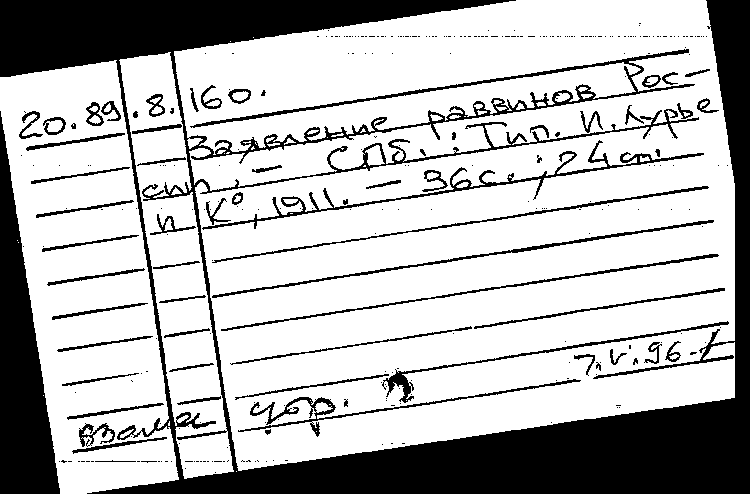 20.89.8.160.
Заявление раввинов Рос-
сии. — СПб.: Тип. И. Лурье
и К°, 1911. — 36 с.; 24 см.
7.V.96
взамен